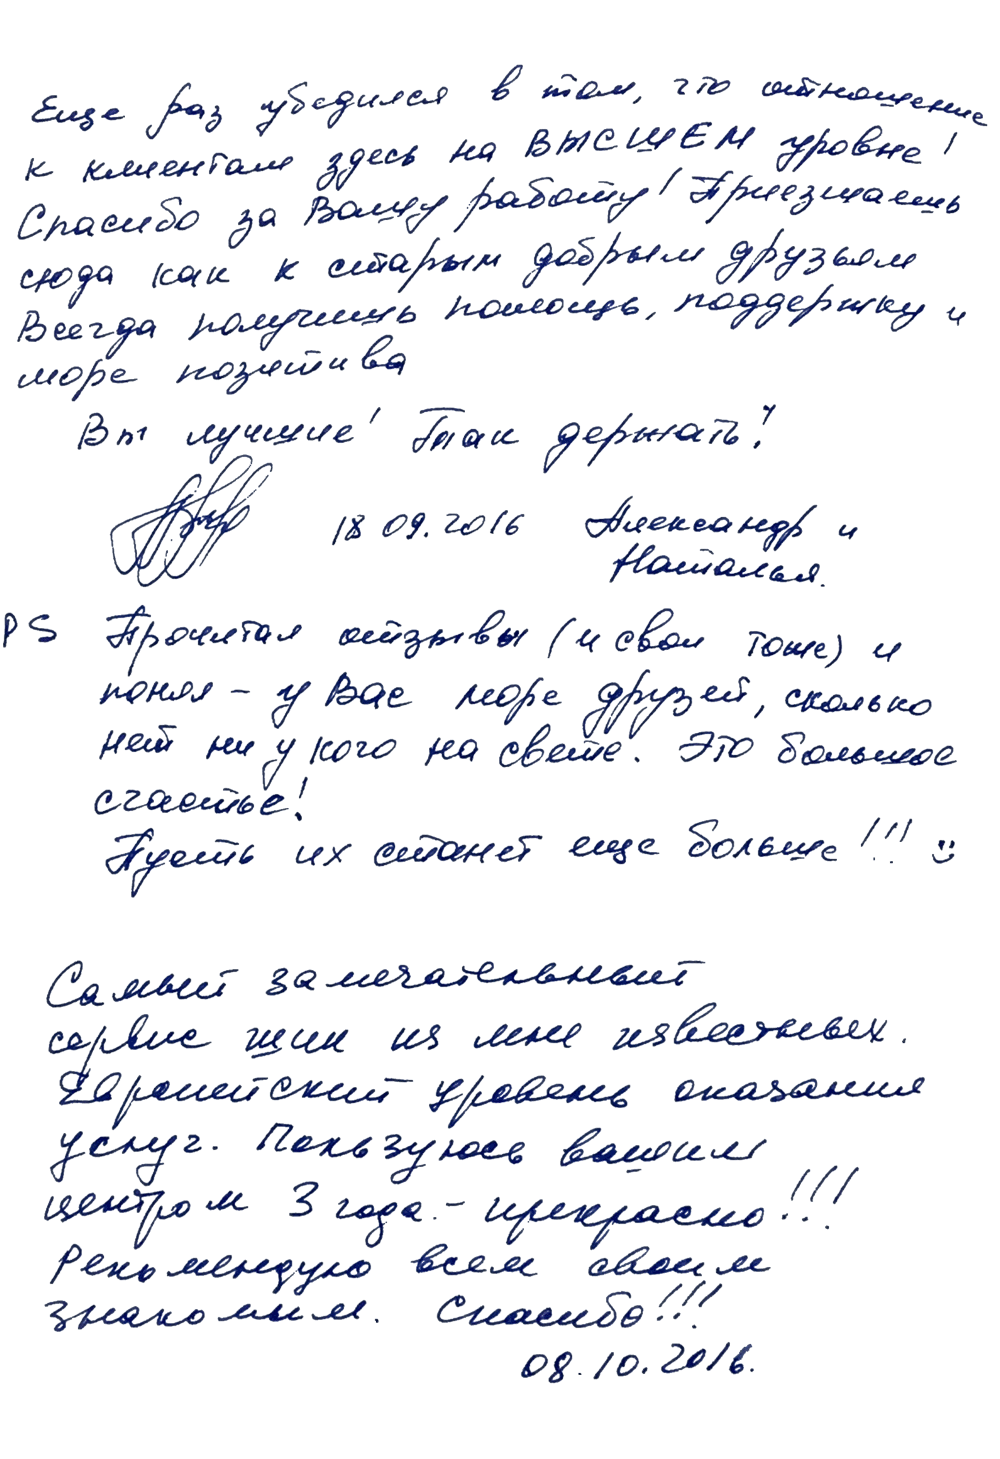 Еще раз убедился в том, что отношение
к клиентам здесь на ВЫСШЕМ уровне!
Спасибо за Вашу работу! Приезжаешь
сюда как к старым добрым друзьям
Всегда получишь помощь, поддержку и
море позитива
Вы лучшие! Так держать!
18 09.2016 Александр и
Наталья.
PS Прочитал отзывы (и свои тоже) и
понял - у Вас море друзей, сколько
нет ни у кого на свете. Это большое
счастье!
Пусть их станет еще больше!!!
Самый замечательный
сервис шин из мне известных.
Европейский уровень оказания
услуг. Пользуюсь вашим
центром 3 года - прекрасно!!!
Рекомендую всем своим
знакомым. Спасибо!!!
08.10.2016.